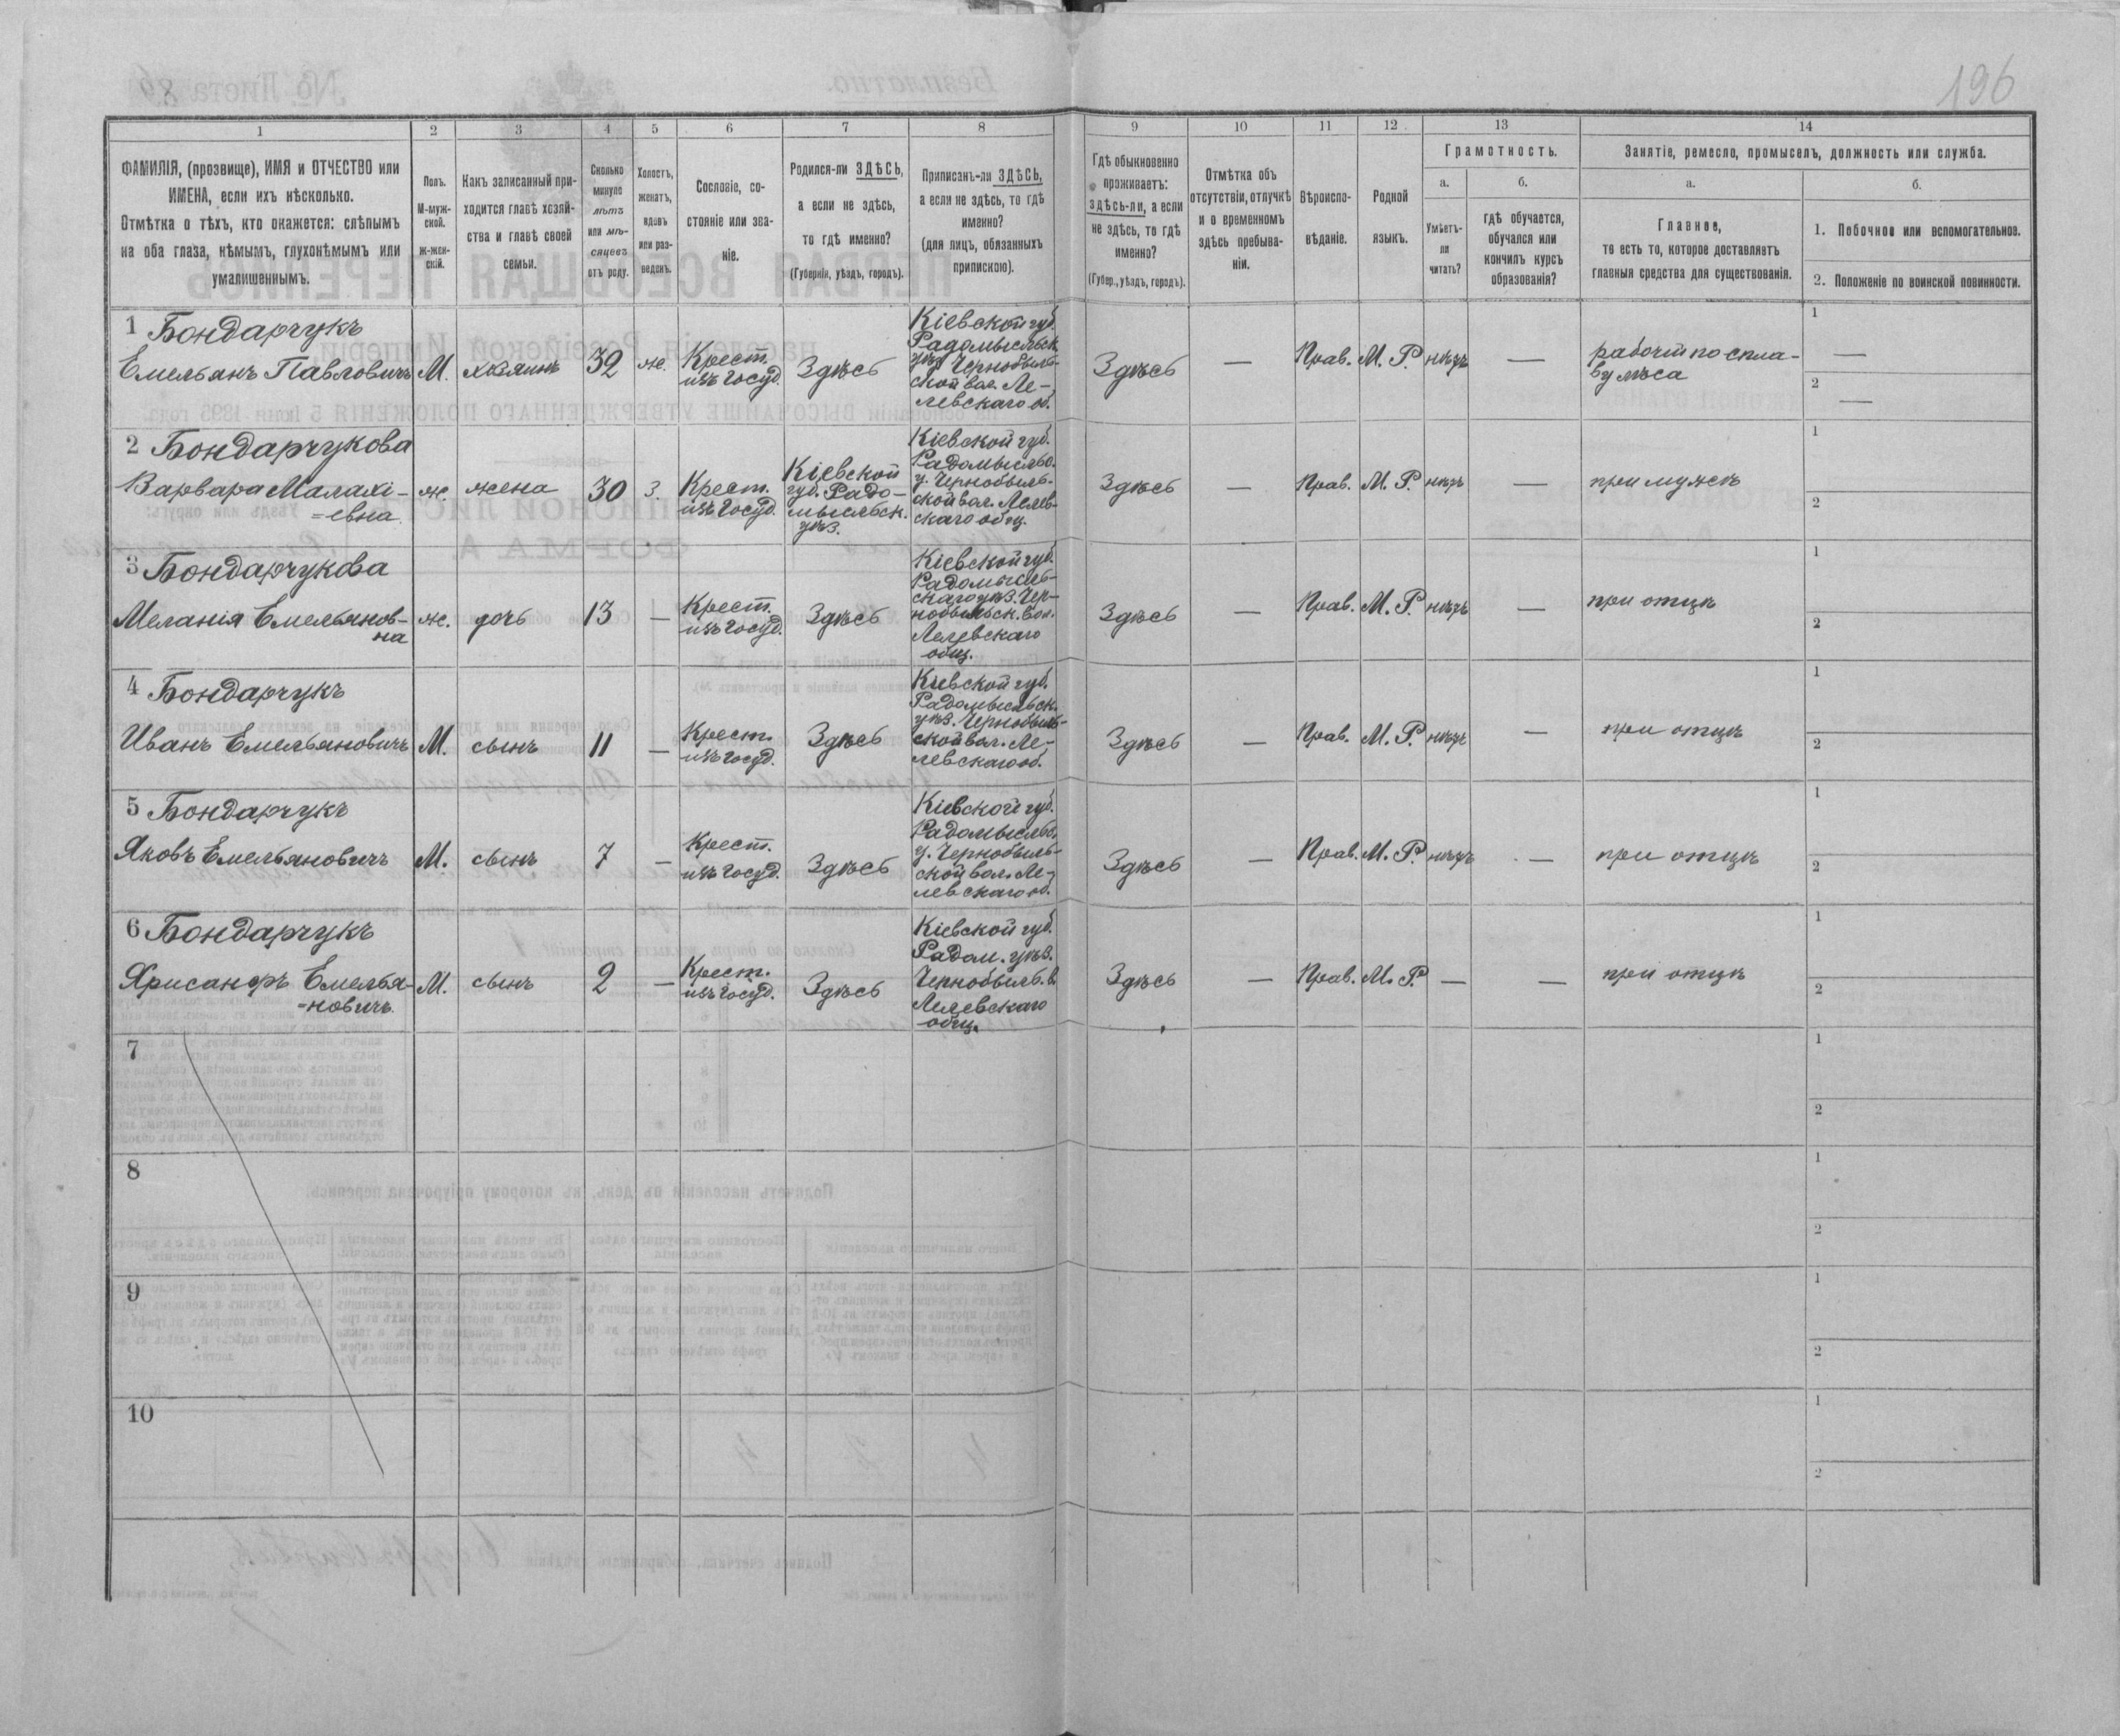 196
1 2 3 4 5 6 7 8 9 10 11 12 13 14
ФАМИЛІЯ, (прозвище), ИМЯ и ОТЧЕСТВО или
ИМЕНА, если ихъ нѣсколько.
Отмѣтка о тѣхъ, кто окажется: слѣпымъ
на оба глаза, нѣмымъ, глухонѣмымъ или
умалишеннымъ.
Полъ.
М-муж-
ской.
ж-жен-
скій.
Какъ записанный при-
ходится главѣ хозяй-
ства и главѣ своей
семьи.
Сколько
минуло
лѣтъ
или мѣ-
сяцевъ
отъ роду.
Холостъ,
женатъ,
вдовъ
или раз-
веденъ.
Сословіе, со-
стояніе или зва-
ніе.
Родился-ли ЗДѢСЬ,
а если не здѣсь,
то гдѣ именно?
(Губернія, уѣздъ, городъ).
Приписанъ-ли ЗДѢСЬ,
а если не здѣсь, то гдѣ
именно?
(для лицъ, обязанныхъ
припискою).
Гдѣ обыкновенно
проживаетъ:
здѣсь-ли, а если
не здѣсь, то гдѣ
именно?
(Губер., уѣздъ, городъ).
Отмѣтка объ
отсутствіи, отлучкѣ
и о временномъ
здѣсь пребыва-
ніи.
Вѣроиспо-
вѣданіе.
Родной
языкъ.
Грамотность.
а.
Умѣетъ-
ли
читать?
б.
гдѣ обучается,
обучался или
кончилъ курсъ
образованія?
Занятіе, ремесло, промыселъ, должность или служба.
а.
Главное,
то есть то, которое доставляетъ
главныя средства для существованія.
б.
1. Побочное или вспомогательное.
2. Положеніе по воинской повинности.
1 Бондарчукъ
Емельянъ Павловичъ
М.
хозяинъ
32
ж.
Крест.
изъ госуд.
Здѣсь
Кіевской губ.
Радомысльск.
уѣз. Чернобыль-
ской вол. Ле-
левскаго об.
Здѣсь
—
Прав.
М. Р.
нѣтъ
—
рабочій по спла-
ву лѣса
1 —
2 —
2 Бондарчукова
Варвара Малахі-
=евна
ж.
жена
30
З.
Крест.
изъ госуд.
Кіевской
губ. Радо-
мысльск.
уѣз.
Кіевской губ.
Радомысльс.
у. Чернобыль-
ской вол. Лелев-
скаго общ.
Здѣсь
—
Прав.
М. Р.
нѣтъ
—
при мужѣ
1
2
3 Бондарчукова
Меланія Емельянов-
на
ж.
дочь
13
—
Крест.
изъ госуд.
Здѣсь
Кіевской губ.
Радомысль-
скаго уѣз. Чер-
нобыльск. вол.
Лелевскаго
общ.
Здѣсь
—
Прав.
М. Р.
нѣтъ
—
при отцѣ
1
2
4 Бондарчукъ
Иванъ Емельяновичъ
М.
сынъ
11
—
Крест.
изъ госуд.
Здѣсь
Кіевской губ.
Радомысльск.
уѣз. Чернобыль-
ской вол. Ле-
левскаго об.
Здѣсь
—
Прав.
М. Р.
нѣтъ
—
при отцѣ
1
2
5 Бондарчукъ
Яковъ Емельяновичъ
М.
сынъ
7
—
Крест.
изъ госуд.
Здѣсь
Кіевской губ.
Радомысльс.
у. Чернобыль-
ской вол. Ле-
левскаго об.
Здѣсь
—
Прав.
М. Р.
нѣтъ
—
при отцѣ
1
2
6 Бондарчукъ
Хрисанфъ Емелья-
=новичъ
М.
сынъ
2
—
Крест.
изъ госуд.
Здѣсь
Кіевской губ.
Радом. уѣз.
Чернобыль. в.
Лелевскаго
общ.
Здѣсь
—
Прав.
М. Р.
—
—
при отцѣ
1
2
7
1
2
8
1
2
9
1
2
10
1
2